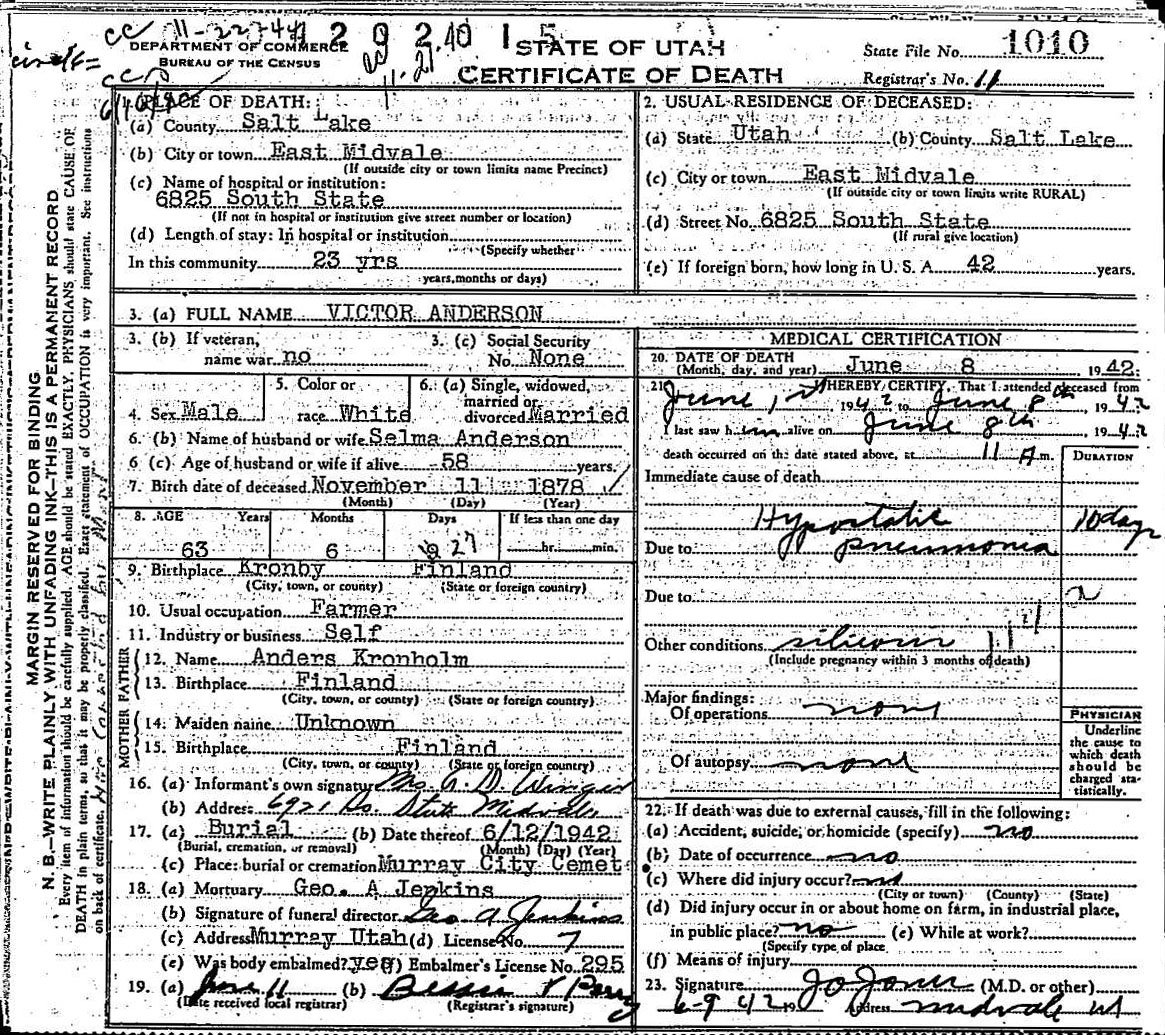 STATE OF UTAH
CERTIFICATE OF DEATH
DEPARTMENT OF COMMERCE
BUREAU OF THE CENSUS
State File No. 1010
Registrar's No. 11
MARGIN RESERVED FOR BINDING
N. B.—WRITE PLAINLY WITH UNFADING INK—THIS IS A PERMANENT RECORD
Every item of information should be carefully supplied. AGE should be stated EXACTLY. PHYSICIANS should state CAUSE OF
DEATH in plain terms, so that it may be properly classified. Exact statement of OCCUPATION is very important. See instructions
on back of certificate.
PLACE OF DEATH:
(a) County Salt Lake
(b) City or town East Midvale
(If outside city or town limits name Precinct)
(c) Name of hospital or institution:
6825 South State
(If not in hospital or institution give street number or location)
(d) Length of stay: In hospital or institution
(Specify whether
In this community 23 yrs
years, months or days)
2. USUAL RESIDENCE OF DECEASED:
(a) State Utah (b) County Salt Lake
(c) City or town East Midvale
(If outside city or town limits write RURAL)
(d) Street No. 6825 South State
(If rural give location)
(e) If foreign born, how long in U. S. A. 42 years.
3. (a) FULL NAME VICTOR ANDERSON
3. (b) If veteran, name war no
3. (c) Social Security No. None
4. Sex Male
5. Color or race White
6. (a) Single, widowed, married or divorced Married
6. (b) Name of husband or wife Selma Anderson
6 (c) Age of husband or wife if alive 58 years.
7. Birth date of deceased November 11 1878
(Month) (Day) (Year)
8. AGE Years Months Days If less than one day
63 6 27 hr. min.
9. Birthplace Kronby Finland
(City, town, or county) (State or foreign country)
10. Usual occupation Farmer
11. Industry or business Self
FATHER
12. Name Anders Kronholm
13. Birthplace Finland
(City, town, or county) (State or foreign country)
MOTHER
14. Maiden name Unknown
15. Birthplace Finland
(City, town, or county) (State or foreign country)
16. (a) Informant's own signature Mrs.
(b) Address 6921 So. State Midvale
17. (a) Burial (b) Date thereof 6/12/1942
(Burial, cremation, or removal) (Month) (Day) (Year)
(c) Place: burial or cremation Murray City Cemet
18. (a) Mortuary Geo. A Jenkins
(b) Signature of funeral director Geo A Jenkins
(c) Address Murray Utah (d) License No. 7
(e) Was body embalmed? yes (f) Embalmer's License No. 295
19. (a) June 11 (b) Bessie
(Date received local registrar) (Registrar's signature)
MEDICAL CERTIFICATION
20. DATE OF DEATH June 8 1942
(Month, day, and year)
21. I HEREBY CERTIFY, That I attended deceased from
June 1st 1942 to June 8th, 1942
I last saw him alive on June 8th 1942
death occurred on the date stated above, at 11 A.m.
DURATION
Immediate cause of death
Hypostatic 10 days
Due to pneumonia
Due to
Other conditions silicosis
(Include pregnancy within 3 months of death)
Major findings:
Of operations none
Of autopsy none
PHYSICIAN
Underline
the cause to
which death
should be
charged sta-
tistically.
22. If death was due to external causes, fill in the following:
(a) Accident, suicide, or homicide (specify) no
(b) Date of occurrence no
(c) Where did injury occur?
(City or town) (County) (State)
(d) Did injury occur in or about home on farm, in industrial place,
in public place? no (e) While at work?
(Specify type of place
(f) Means of injury
23. Signature Jo Jones (M.D. or other)
6-9 42 19 Address Midvale Ut